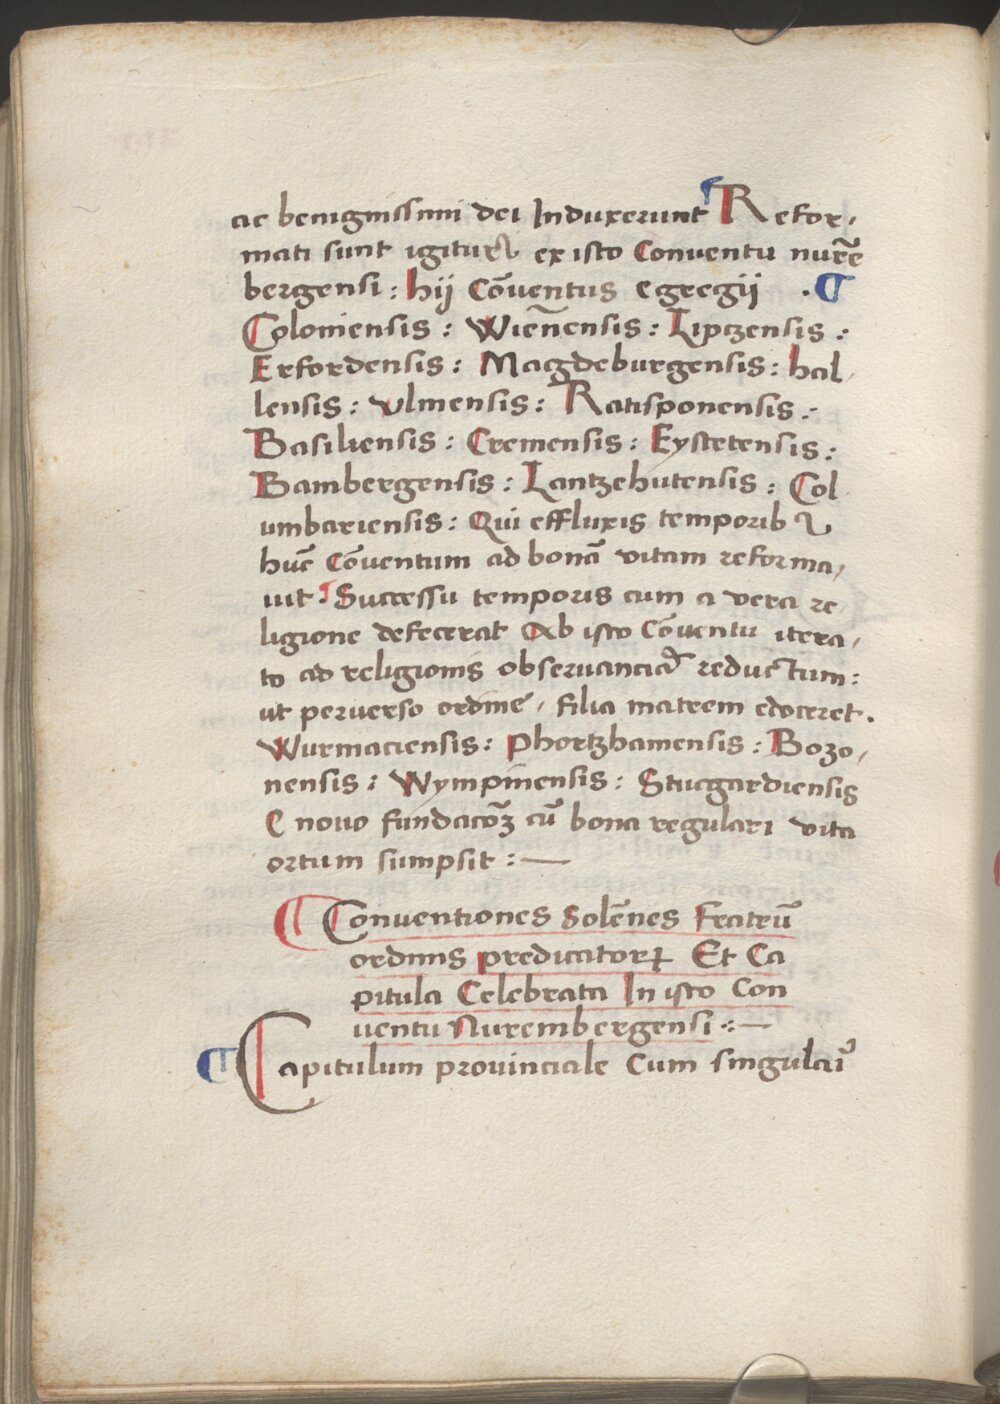 ac benignissimi dei Induxerunt ¶ Refor,
mati sunt igitur ex isto Conventu nurē
bergensi : hij Cōventus egregij . ¶
Coloniensis : Wieñensis : Liptzensis :
Erfordensis : Magdeburgensis : hal,
lensis : vlmensis : Ratisponensis :
Basiliensis : Cremensis : Eystetensis :
Bambergensis : Lantzehutensis : Col
umbariensis : Qui effluxis temporibꝫ
hūc Cōuentum ad bonā vitam reforma,
uit : Successu temporis cum a vera re
ligione defecerat Ab isto Cōuentu itera,
to ad religionis obseruanciā reductum :
ut peruerso ordine , filia matrem edoceret .
Wurmaciensis : phortzhamensis : Bozo,
nensis : Wympinensis : Stucgardiensis
E nouo fundacōꝫ cū bona regulari vita
ortum sumpsit : —
¶ Conuentiones Solēnes Fratrū
ordinis predicatorꝝ Et Ca
pitula Celebrata In isto Con
uentu Nurembergensi : —
¶ Capitulum prouinciale Cum singulari